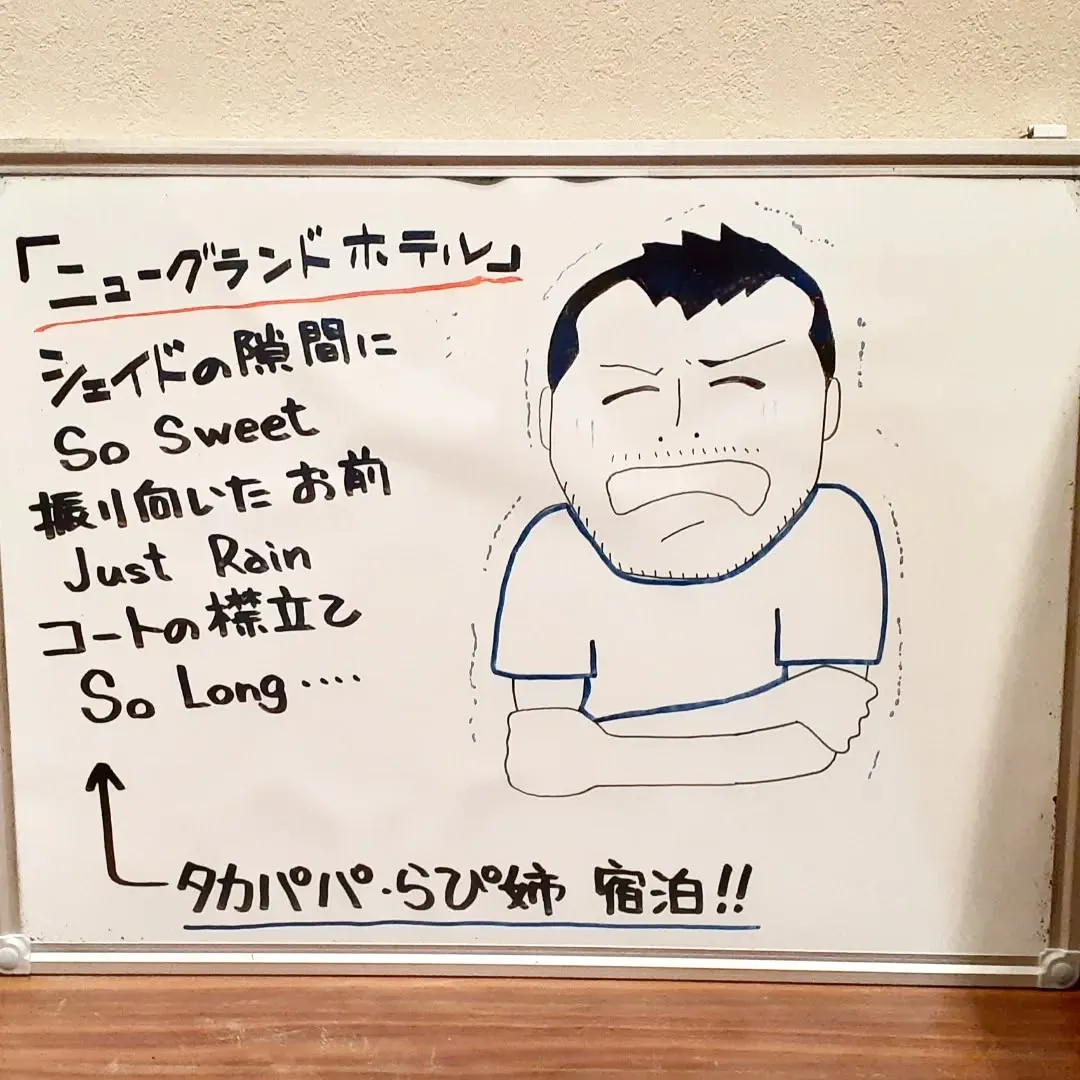 「ニューグランドホテル」
シェイドの隙間に
So Sweet
振り向いたお前
Just Rain
コートの襟立て
So Long‥‥
タカパパ・らぴ姉 宿泊!!